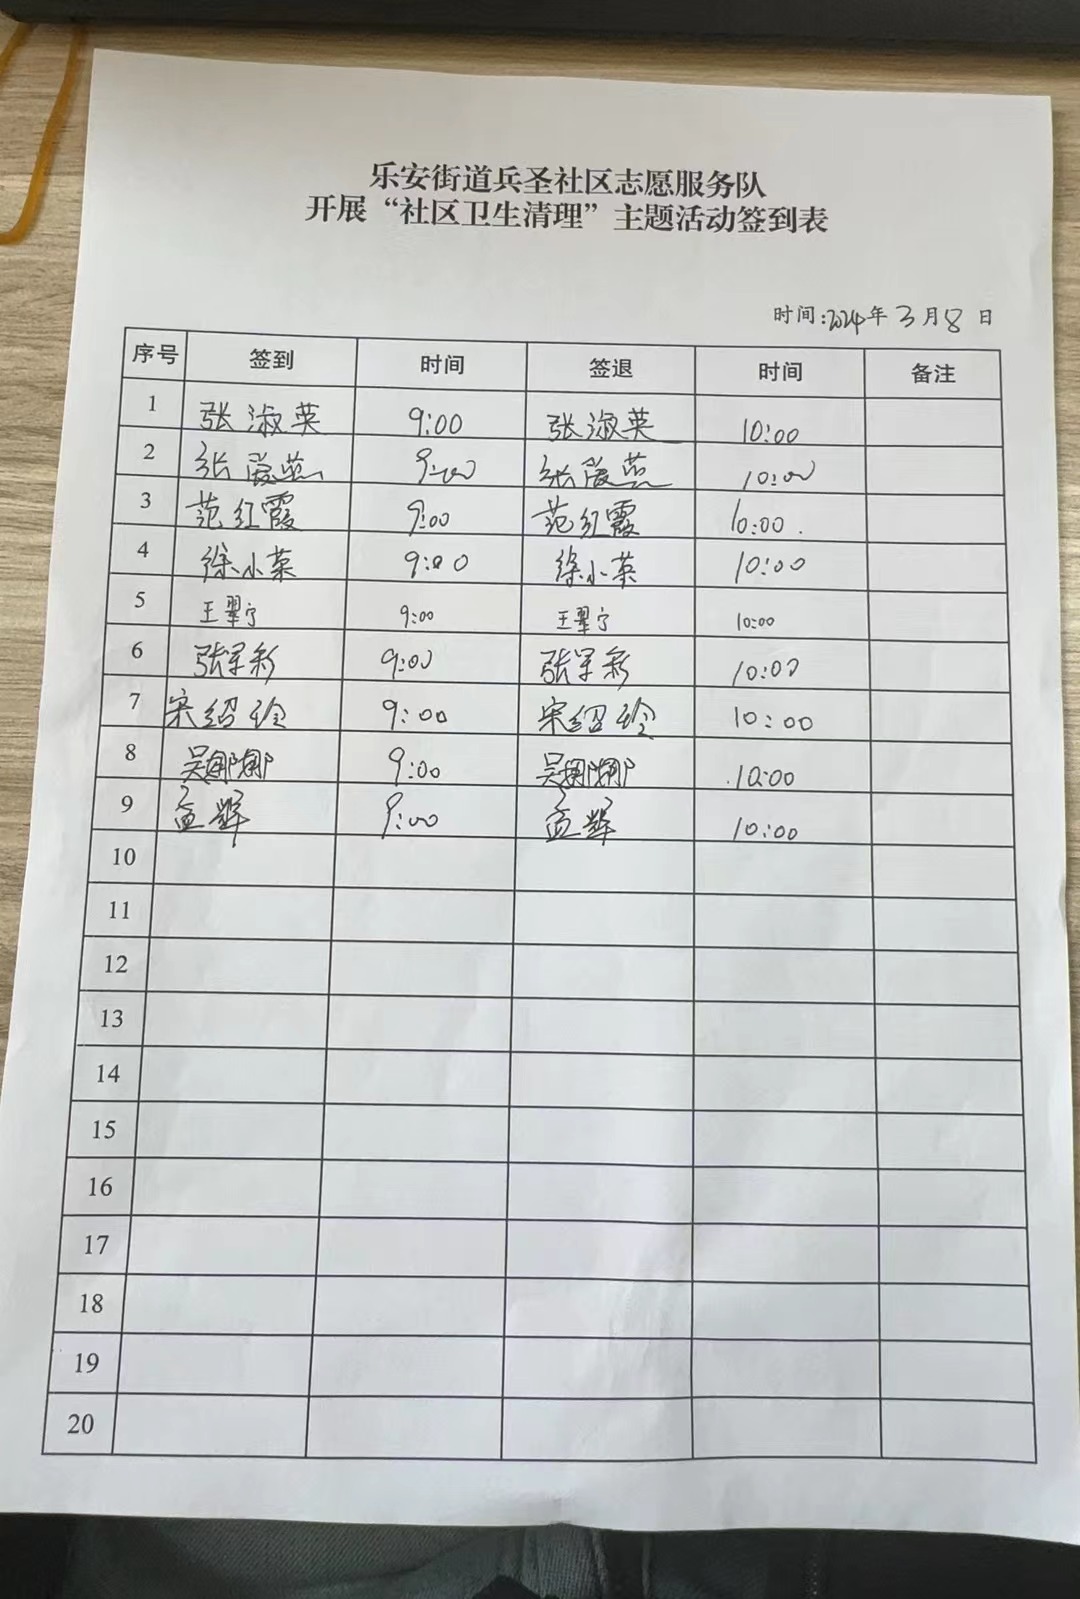 乐安街道兵圣社区志愿服务队
开展“社区卫生清理”主题活动签到表
时间:2024年3月8日
序号 签到 时间 签退 时间 备注
1 张淑英 9:00 张淑英 10:00
2 张 9:00 张 10:00
3 范红霞 9:00 范红霞 10:00.
4 徐小菜 9:00 徐小菜 10:00
5 王翠宁 9:00 王翠宁 10:00
6 张军彩 9:00 张军彩 10:00
7 宋绍玲 9:00 宋绍玲 10:00
8 吴娜娜 9:00 吴娜娜 10:00
9 孟 9:00 孟 10:00
10
11
12
13
14
15
16
17
18
19
20